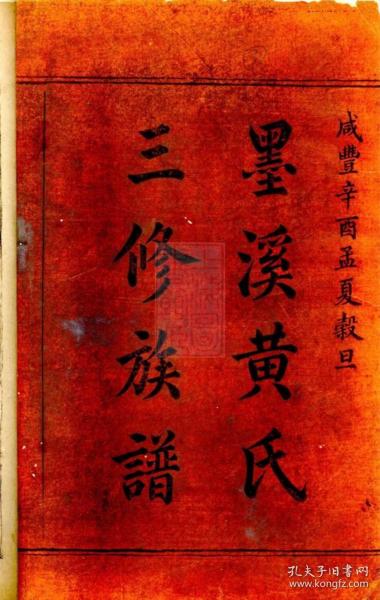 咸豐辛酉孟夏穀旦
墨溪黄氏
三修族譜
孔夫子旧书网
www.kongfz.com